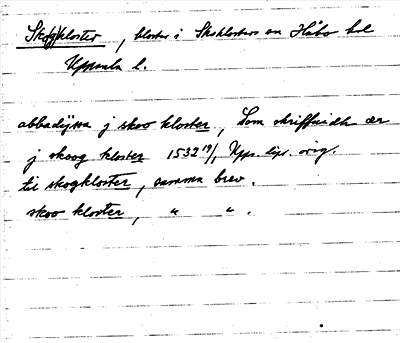 Skog(kloster, kloster i Skoklosters sn Håbo hd
Uppsala l.
abbadijssa j skoo kloster, som skriffuidh ær
j skoog kloster 1532 19/1 Upps. dipl. orig.
til skogkloster, samma brev.
skoo kloster, " " .